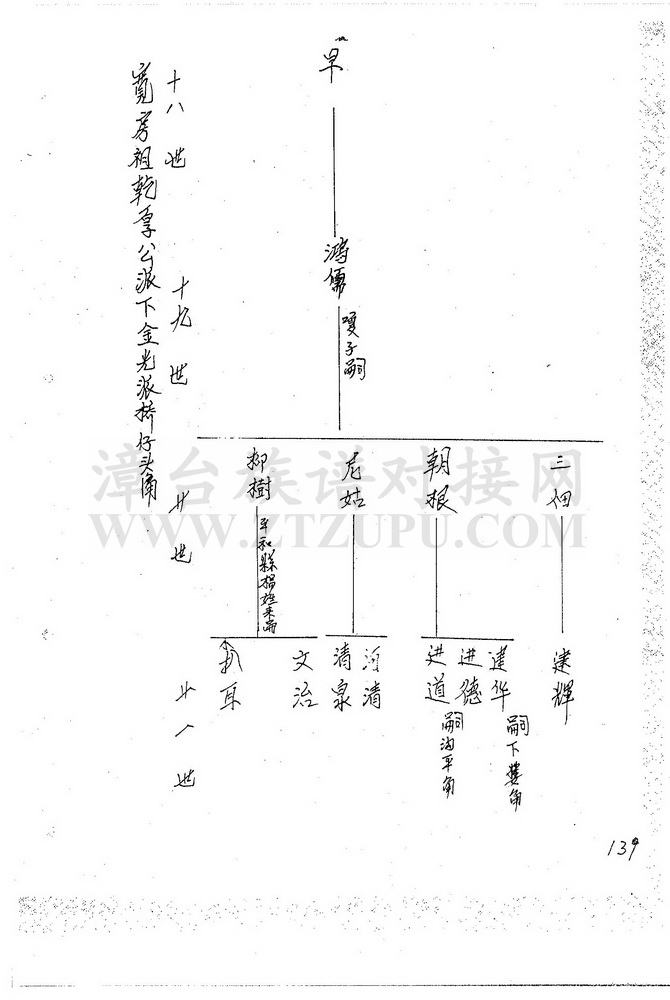 寬房祖乾享公派下金光派橋仔头角
十八世
十九世
廿世
廿一世
早
鴻儒
嘤子嗣
三佃
朝根
尼姑
柳樹
平和縣楊姓来嗣
建輝
建华
嗣下婁角
进德
进道
嗣沟平角
河清
清泉
文治
扒耳
139
漳台族谱对接网
WWW.ZTZUPU.COM